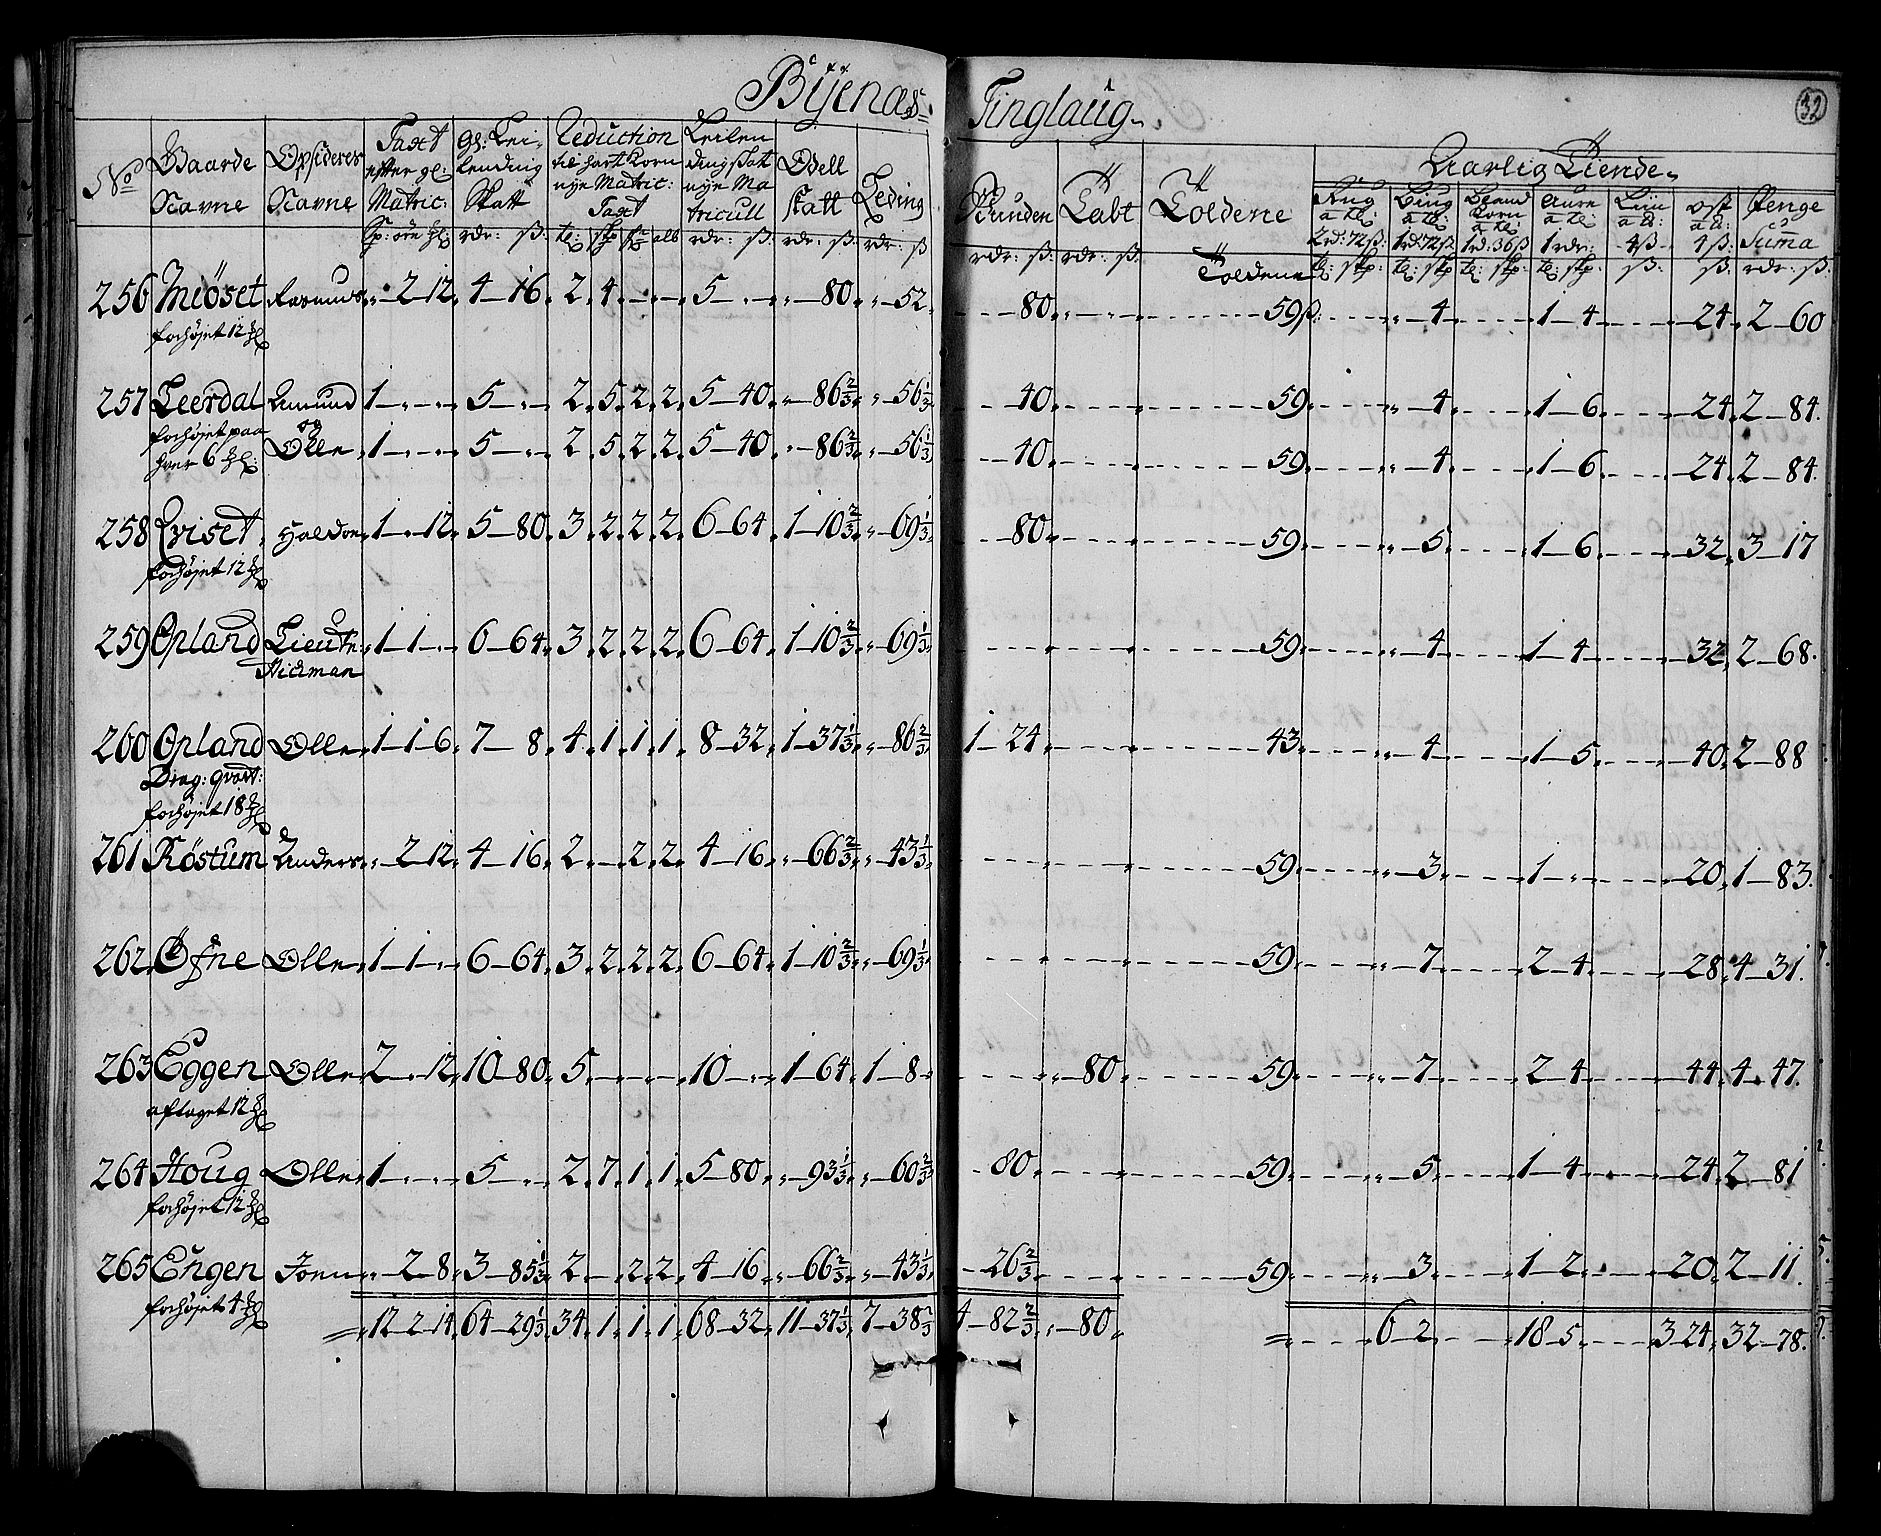 Bÿenæs Tinglaŭg
32
No Gaarde Navne | Opsideres Navne | Taxt efter gl: Matric: | gl: Leilending Skatt | Reduction til hart Korn nye Matric: Taxt | Leilendings skatt nye Matricull | Odell skatt | Leding | Bunden | Labt | Toldene | Aarlig Tiende
Rug a te: 2rd:72ß: | Biug a te: 1rd:72ß | Bland Korn a te 1rd:36ß | aure a te: 1 rdr: | Liin a 4ß | ost a 4ß: | Penge Suma
256 Miöset Rasmus - 2-12. 4-16. 2. 4. - - 5 - - 80. - 52. - 80. - 59ß - 4. 1-4. 24. 2-60
forhöjet 12
257 Leerdal Amund 1 - - 5 - 2. 5. 2. 2. 5-40 - 86 2/3 - 56 1/3 - 40. - 59. - 4. 1-6. 24. 2-84.
forhöjet paa og
hver 6 Olle 1 - - 5 - 2. 5. 2. 2. 5-40 - 86 2/3 - 56 1/3 - 40. - 59. - 4. 1-6. 24. 2-84.
258 Qviset Haldor 1 - 12. 5-80. 3. 2. 2. 2. 6-64. 1-10 2/3 - 69 1/3 - 80. - 59. - 5. 1-6. 32. 3-17
forhöjet 12
259 Opland Lieutn: 1-1 - 6-64. 3. 2. 2. 2. 6-64. 1-10 2/3 - 69 1/3 - 59. - 4. 1-4. 32. 2-68.
Hickman
260 Opland Olle 1-1-6. 7-8. 4. 1. 1. 1. 8-32. 1-37 1/3 - 86 2/3 1-24. - 43. - 4. 1-5. 40. 2-88
Drag: qvart:
forhöjet 18
261 Röstum Anders - 2-12. 4-16. 2. - 2. 2. 4-16. - 66 2/3 - 43 1/3 - 59. - 3. 1 - 20. 1-83.
262 Öfne Olle 1-1 - 6-64. 3. 2. 2. 2. 6-64. 1-10 2/3 - 69 1/3 - 59. - 7. 2-4. 28. 4-31.
263 Eggen Olle 2 - 12. 10-80. 5. - - - 10 - 1-64. 1-8. - 80. 59. - 7. 2-4. 44. 4-47.
aftaget 12
264 Houg Olle 1 - - 5 - 2. 7. 1. 1. 5-80. - 93 1/3 - 60 2/3 - 80. - 59. - 5. 1-4. 24. 2-81
forhöjet 12
265 Engen Joen - 2-8. 3-85 1/3 2. - 2. 2. 4-16. - 66 2/3 - 43 1/3 - 26 2/3 - 59. - 3. 1-2. 20. 2-11.
forhöjet 4
= 12-2-14. 64-29 1/3 34. 1. 1. 1. 68-32. 11-37 1/3 7-38 2/3 4-82 2/3 - 80. = 6-2. 18-5. 3-24. 32-78.